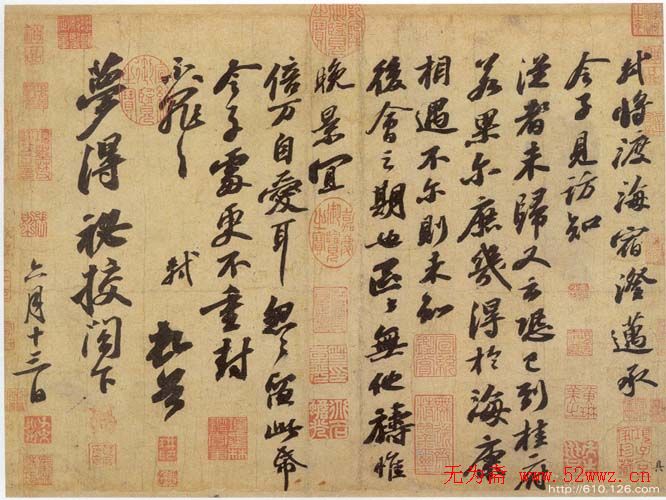 軾將渡海宿澄邁承
令子見訪知
從者未歸又云恐已到桂府
若果尔庶幾得於海康
相遇不尔則未知
後會之期也區〻無他禱惟
晚景宜
倍万自愛耳怱〻留此帋
令子處更不重封
不罪〻
軾 頓首
夢得祕校閣下
六月十三日
无为斋 www.52wwz.cn
http://610.126.com